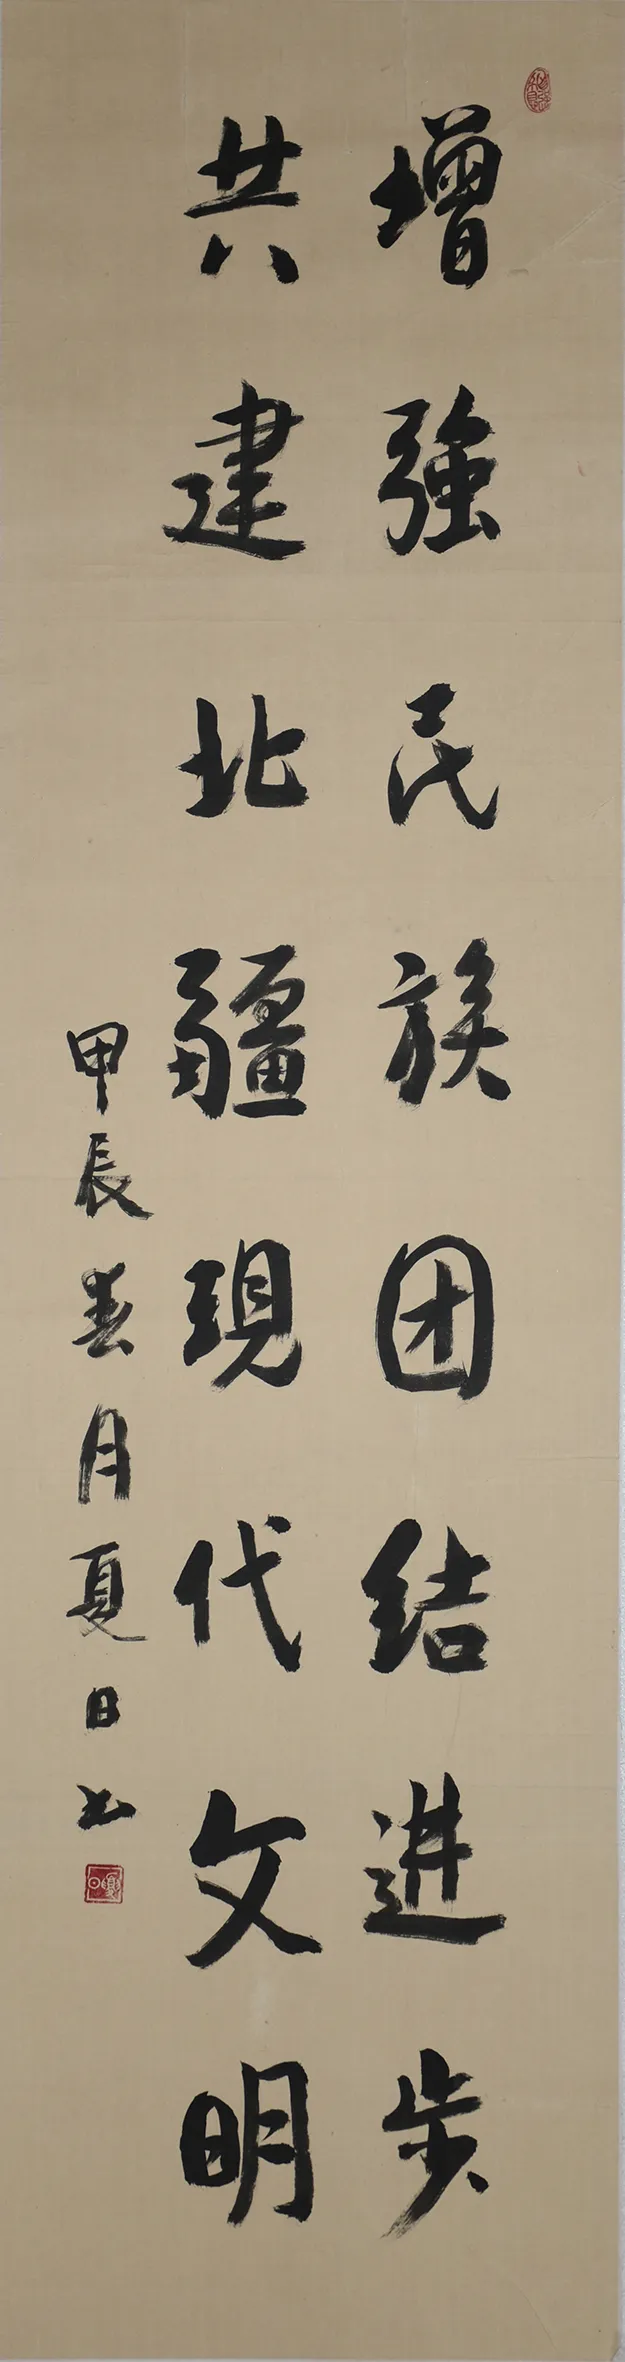 增強民族团结进步
共建北疆現代文明
甲辰春月夏日书